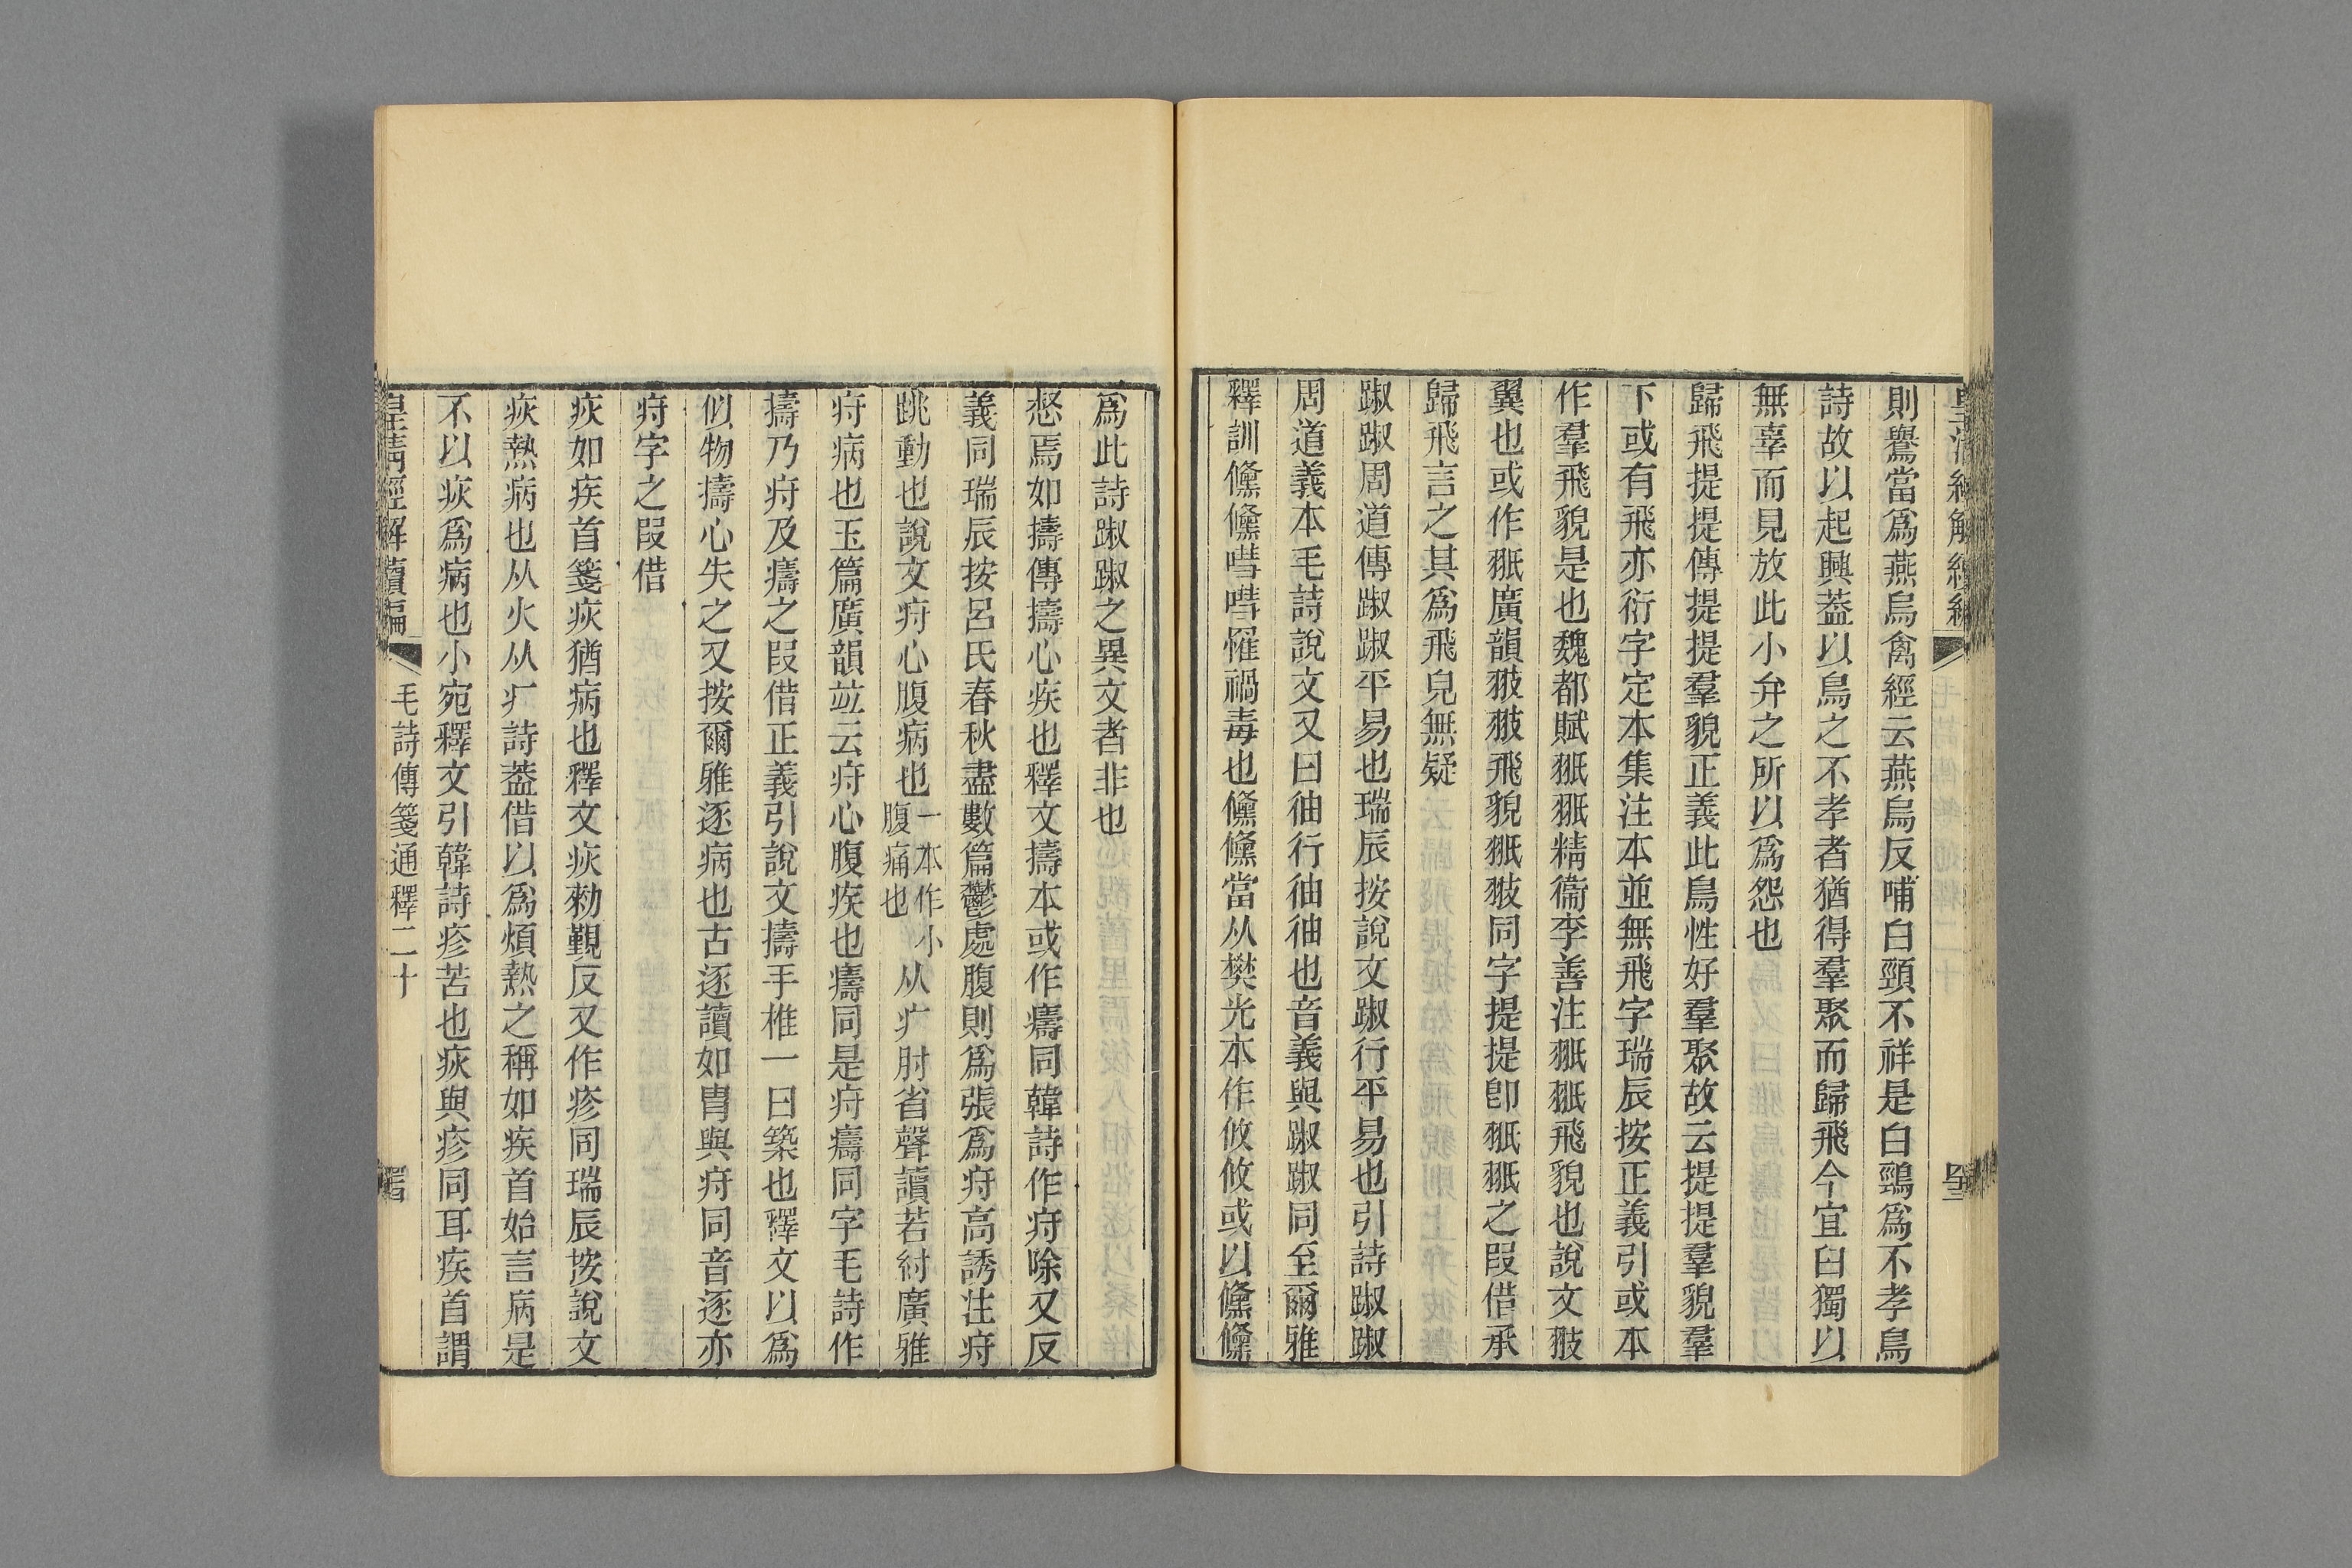 皇清經解續編
則鸒當爲燕烏禽經云燕烏反哺白頸不祥是白鵶爲不孝鳥
詩故以起興葢以鳥之不孝者猶得羣聚而歸飛今宜臼獨以
無辜而見放此小弁之所以爲怨也
歸飛提提傳提提羣貌正義此鳥性好羣聚故云提提羣貌羣
下或有飛亦衍字定本集注本並無飛字瑞辰按正義引或本
作羣飛貌是也魏都賦翐翐精衞李善注翐翐飛貌也說文翄
翼也或作翐廣韻翄翄飛貌翐翄同字提提卽翐翐之叚借承
歸飛言之其爲飛皃無疑
踧踧周道傳踧踧平易也瑞辰按說文踧行平易也引詩踧踧
周道義本毛詩說文又曰㣙行㣙㣙也音義與踧踧同至爾雅
釋訓儵儵嘒嘒罹禍毒也儵儵當从樊光本作攸攸或以儵儵
爲此詩踧踧之異文者非也
惄焉如擣傳擣心疾也釋文擣本或作㿒同韓詩作疛除又反
義同瑞辰按呂氏春秋盡數篇鬱處腹則爲張爲疛高誘注疛
跳動也說文疛心腹病也一本作小腹痛也从疒肘省聲讀若紂廣雅
疛病也玉篇廣韻竝云疛心腹疾也㿒同是疛㿒同字毛詩作
擣乃疛及㿒之叚借正義引說文擣手椎一曰築也釋文以爲
似物擣心失之又按爾雅逐病也古逐讀如胄與疛同音逐亦
疛字之叚借
疢如疾首箋疢猶病也釋文疢勑覲反又作疹同瑞辰按說文
疢熱病也从火从疒詩葢借以爲煩熱之稱如疾首始言病是
不以疢爲病也小宛釋文引韓詩疹苦也疢與疹同耳疾首謂
皇淸經解續編 毛詩傳箋通釋二十